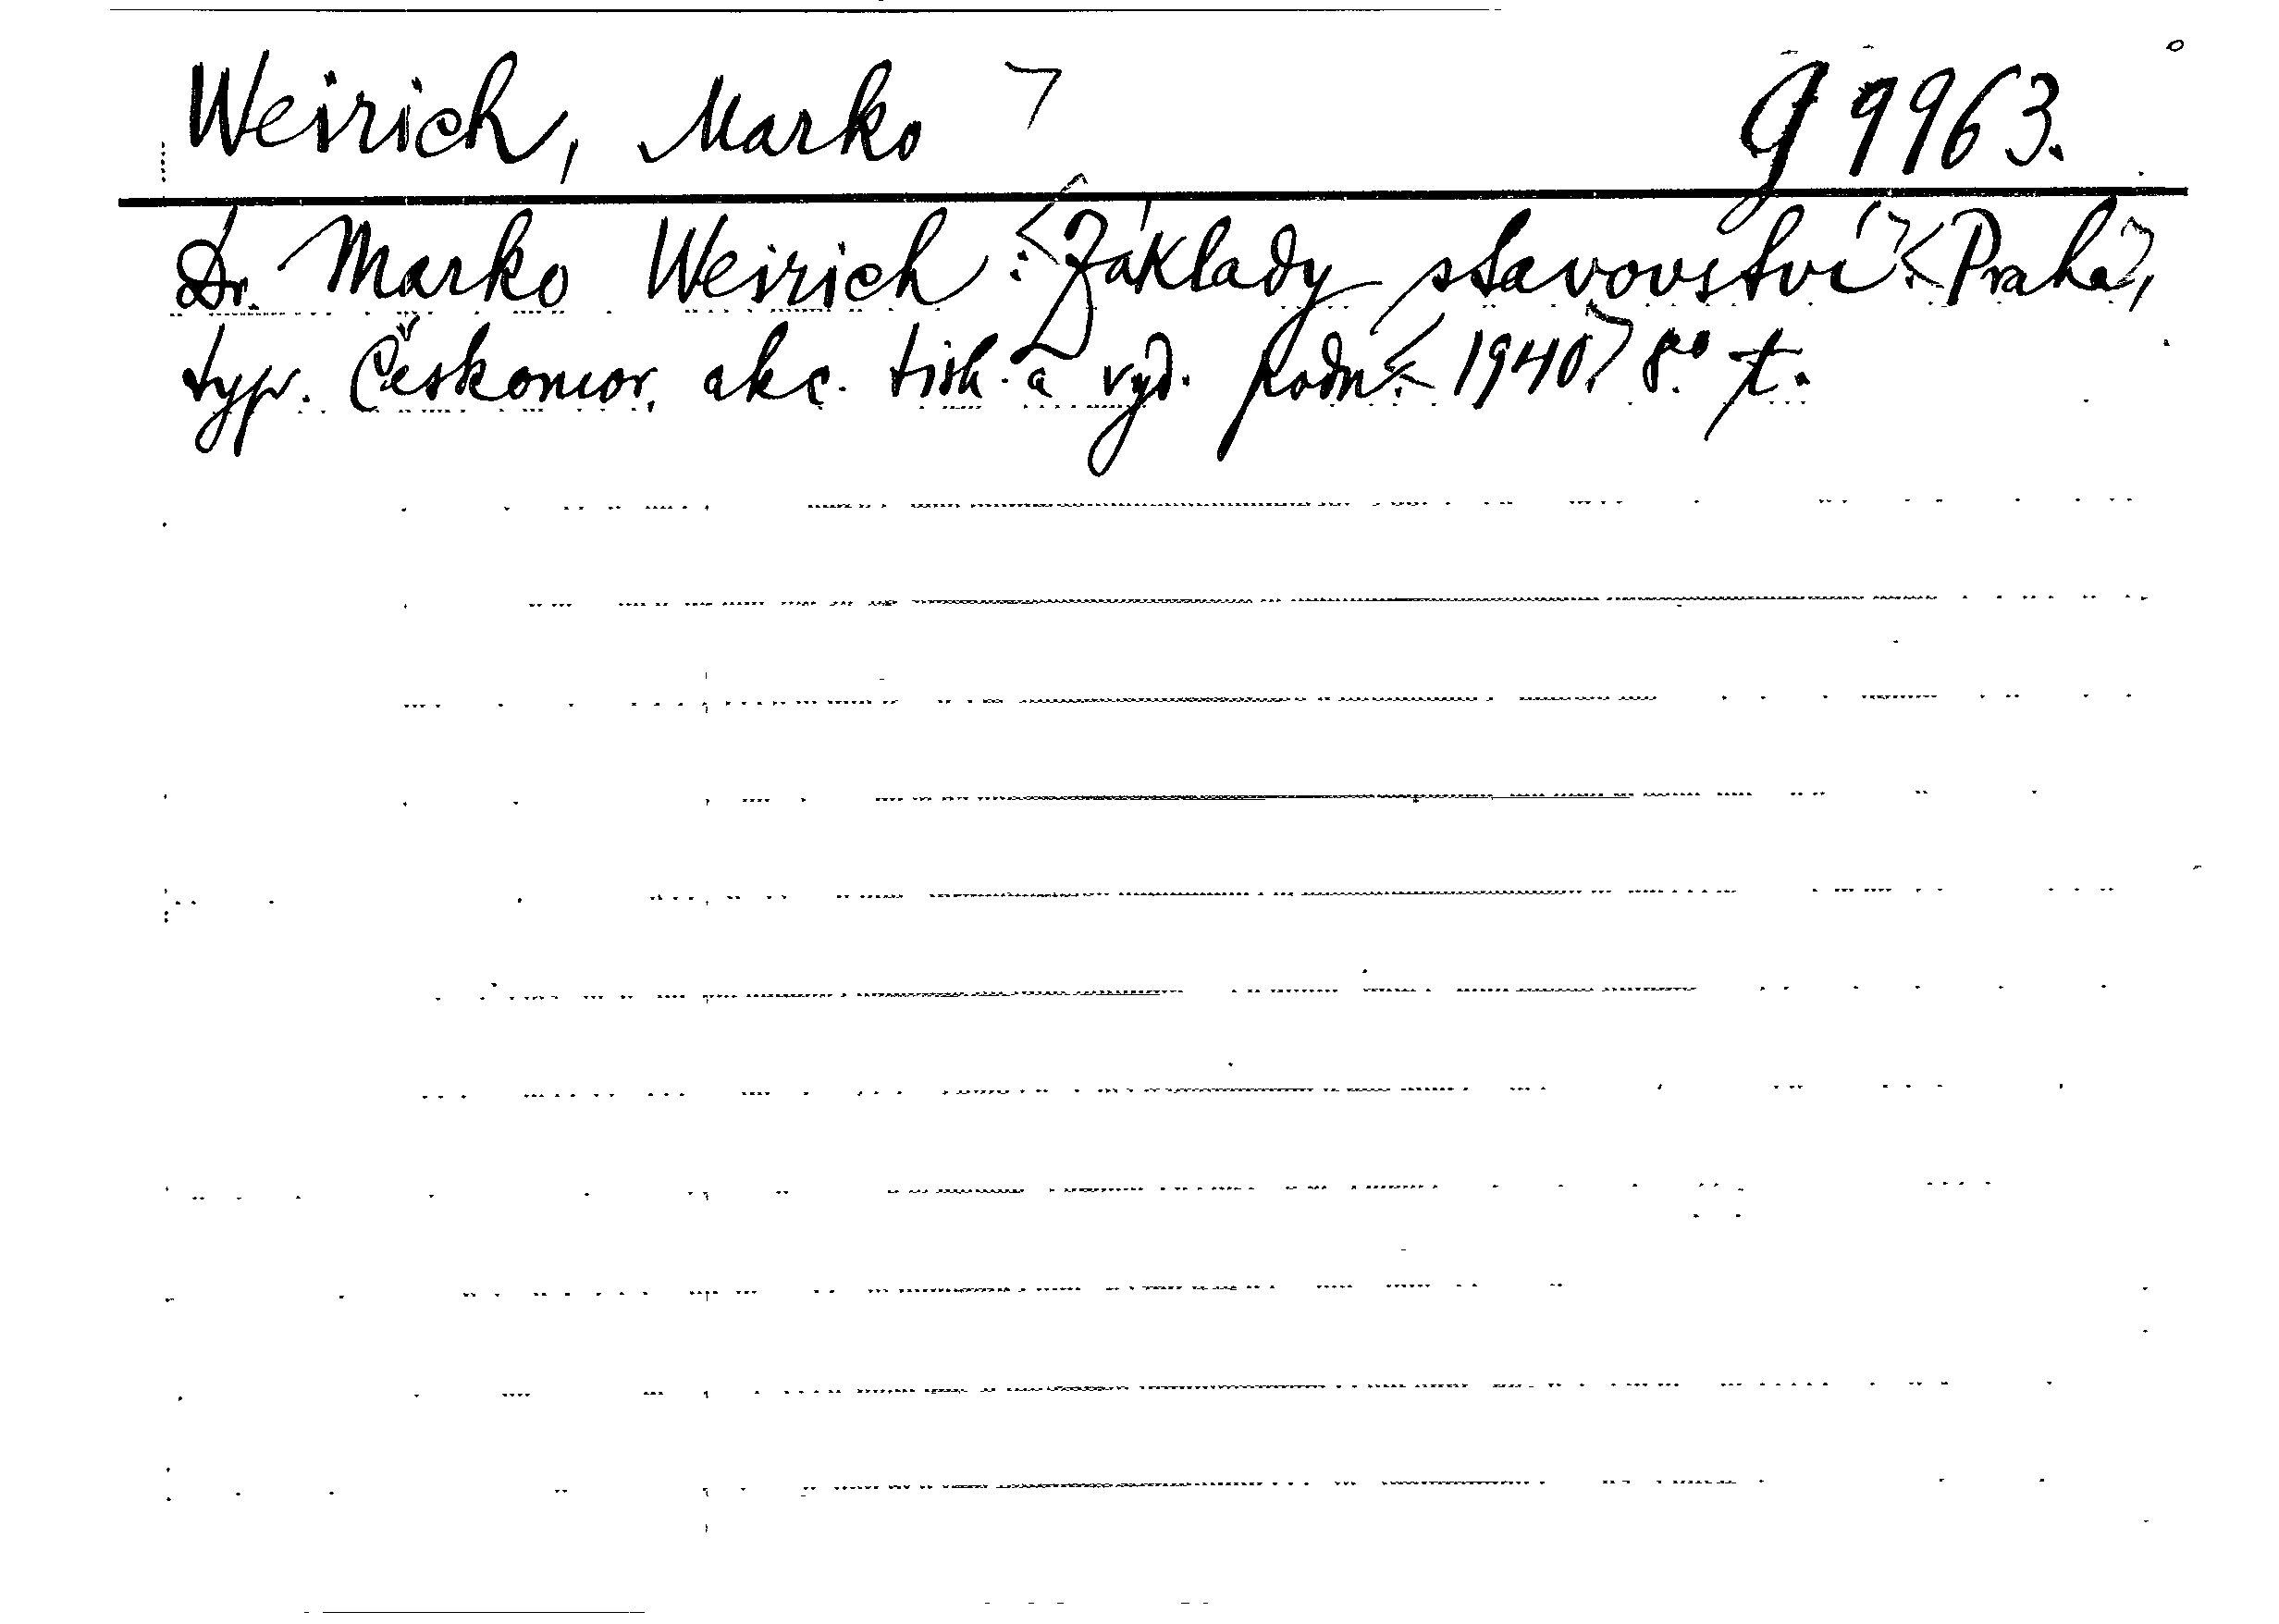 Weirich, Marko> g 9963.
Dr. Marko Weirich: <Základy stavovství>. <Praha>,
typ. Českomor. akc. tisk. a vyd. podn. <1940>. 8.° t.